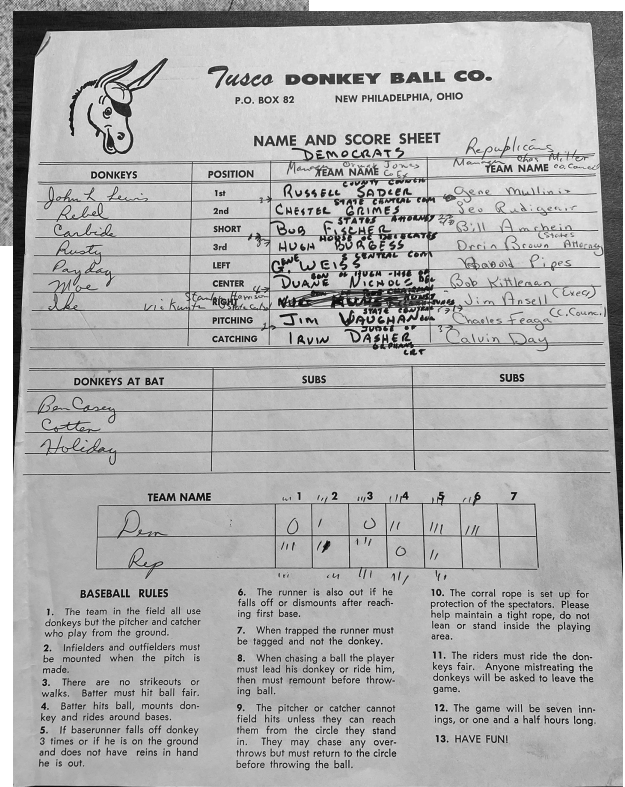 Tusco DONKEY BALL CO.
P.O. BOX 82 NEW PHILADELPHIA, OHIO
NAME AND SCORE SHEET
DEMOCRATS Republicans
Manager Jones Manager Chas Miller
DONKEYS POSITION TEAM NAME TEAM NAME Co. Council
COUNTY COUNCIL
John L Lewis 1st RUSSELL SADLER Gene Mullinix
STATE CENTRAL COM
Rebel 2nd CHESTER GRIMES Leo Rudigenir
STATES ATTORNEY
Carbide SHORT BOB FISCHER Bill Amrhein
HOUSE OF DELEGATES (States
Rusty 3rd HUGH BURGESS Orrin Brown Attorney
S CENTRAL COM
Payday LEFT GENE WEISS Harold Pipes
Moe CENTER DUANE NICHOLS Bob Kittleman
Ike RIGHT Jim Ansell (Exec)
STATE CENTRAL
PITCHING JIM VAUGHAN Charles Feaga (C. Council
JUDGE OF
CATCHING IRVIN DASHER Calvin Day
ORPHANS
CRT
DONKEYS AT BAT SUBS SUBS
Ben Casey
Cotten
Holiday
TEAM NAME 1 2 3 4 5 6 7
Dem 0 1 0 11 111 111
Rep 111 111 0 11
BASEBALL RULES
1. The team in the field all use
donkeys but the pitcher and catcher
who play from the ground.
2. Infielders and outfielders must
be mounted when the pitch is
made.
3. There are no strikeouts or
walks. Batter must hit ball fair.
4. Batter hits ball, mounts don-
key and rides around bases.
5. If baserunner falls off donkey
3 times or if he is on the ground
and does not have reins in hand
he is out.
6. The runner is also out if he
falls off or dismounts after reach-
ing first base.
7. When trapped the runner must
be tagged and not the donkey.
8. When chasing a ball the player
must lead his donkey or ride him,
then must remount before throw-
ing ball.
9. The pitcher or catcher cannot
field hits unless they can reach
them from the circle they stand
in. They may chase any over-
throws but must return to the circle
before throwing the ball.
10. The corral rope is set up for
protection of the spectators. Please
help maintain a tight rope, do not
lean or stand inside the playing
area.
11. The riders must ride the don-
keys fair. Anyone mistreating the
donkeys will be asked to leave the
game.
12. The game will be seven inn-
ings, or one and a half hours long.
13. HAVE FUN!